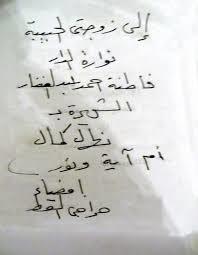 إلى زوجتى الحبيبة
نوارة الدار
فاطمة احمد عبد الغفار
الشهيرة بـ
نظلى كمال
أم آية ونور
إمضاء
القط